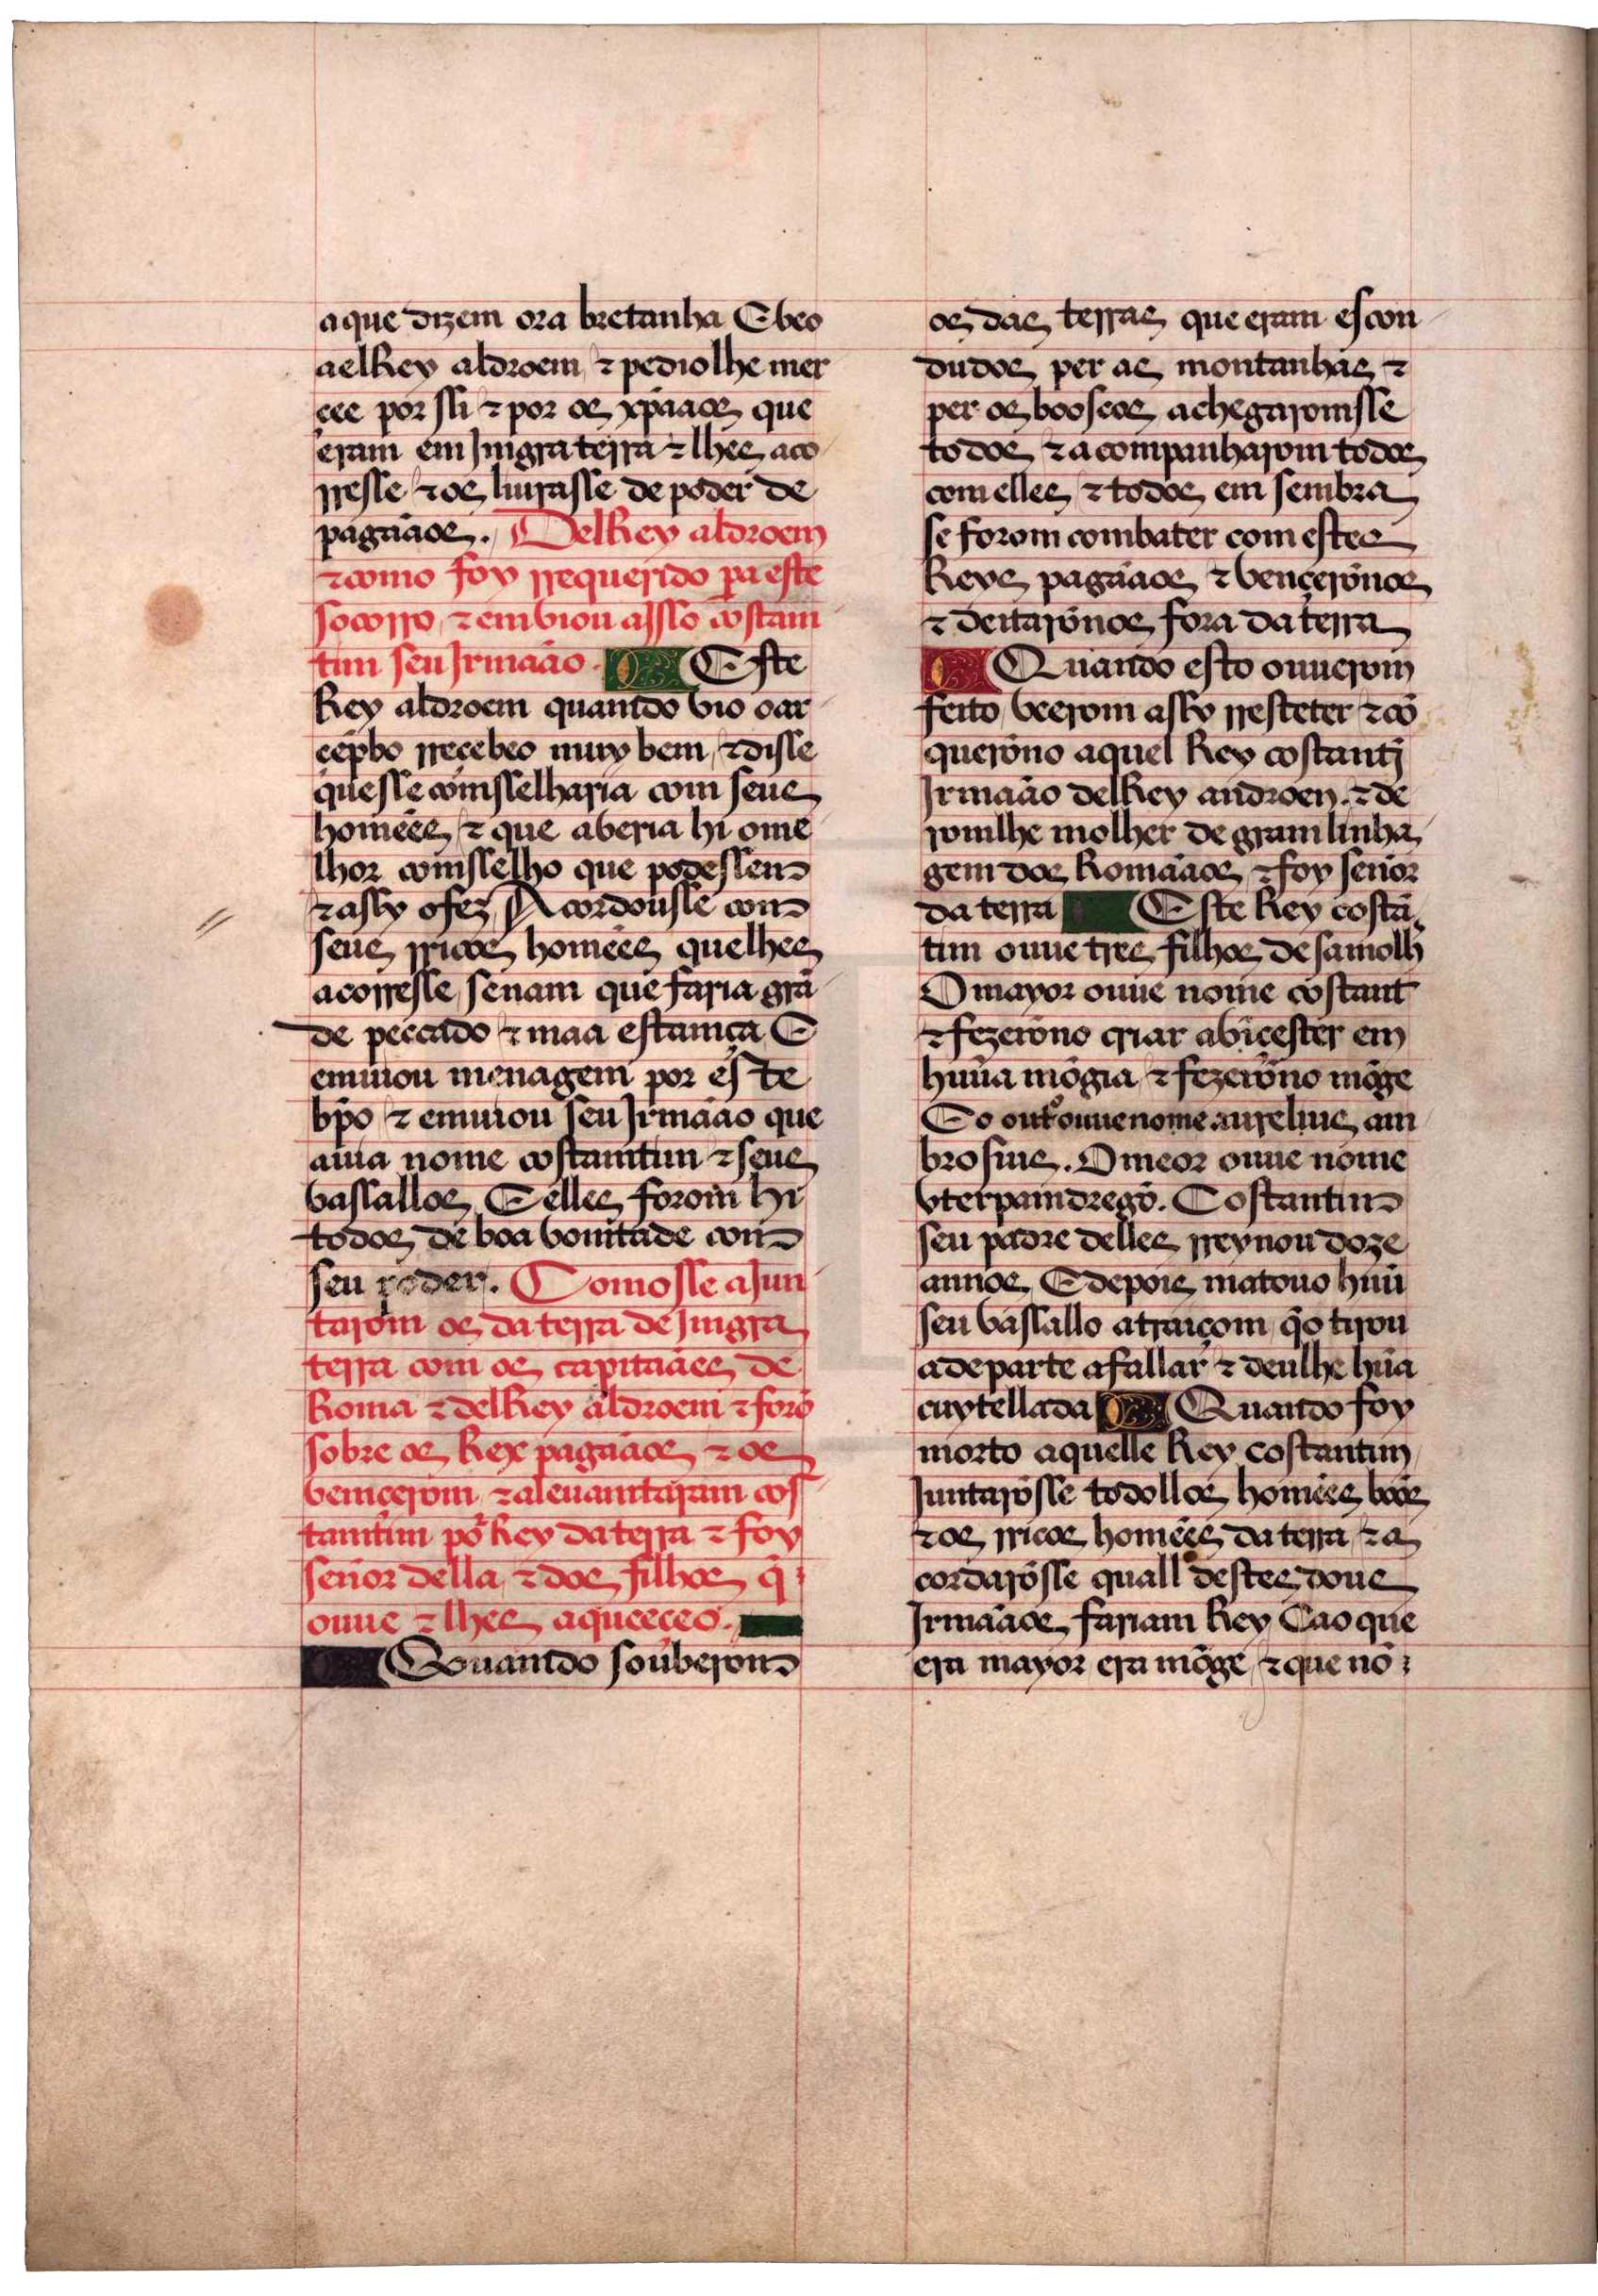 a que dizem ora bretanha E beo
a elRey aldroem ⁊ pediolhe mer
cee por ssi ⁊ por os xp̃aãos que
eram em Jngraterra ⁊ lhes aco
rresse ⁊ os liurasse de poder de
pagaãos. DelRey aldroem
⁊ como foy rrequerido pa este
socorro ⁊ embiou assso costam
tim seu Jrmaão. Este
Rey aldroem quamdo vio o ar
cep̃bo rreçebeo muy bem, ⁊ disse
que sse comsselharia com seus
homẽes, ⁊ que aberia hi o me
lhor comsselho que podessem
⁊ assy o fez, Acordousse com
seus rricos homẽes que lhes
acorresse, senam que faria grã
de peccado ⁊ maa estamça E
emuiou menagem por este
bp̃o ⁊ emuiou seu Jrmaão que
auia nome costamtim ⁊ seus
vassallos, E elles forom hi
todos de boa vomtade com
seu poder. Como sse aJun
tarom os da terra de Jngra
terra com os capitaães de
Roma ⁊ delRey aldroem ⁊ forõ
sobre os Rex pagaãos ⁊ os
vemçerom ⁊ aleuamtaram cos
tamtim por Rey da terra ⁊ foy
senor della, ⁊ dos filhos q̃
ouue ⁊ lhes aqueeceo.
Quuamdo souberom
os das terras que eram escon
dudos per as montanhas ⁊
per os booscos achegaromsse
todos ⁊ acompanharom todos
com elles ⁊ todos em sembra
se forom combater com estes
Reys pagaãos ⁊ vençerõnos
⁊ deitarõnos fora da terra
Quando esto ouuerom
feito, veerom assy rresteter ⁊ cõ
querõno aquel Rey costantj
Jrmaão delRey androen. ⁊ de
romlhe molher de gram linha
gem dos Romaãos ⁊ foy senor
da terra Este Rey costã
tim ouue tres filhos de sa molh
O mayor ouue nome costant
⁊ fezerõno criar a biçester em
huũa mõgia ⁊ fezerõno mõge
E o outº ouue nome aurelius am
brosius. O meor ouue nome
vterpamdregõ. Costantim
seu padre delles rreynou doze
annos, E depois matouo huũ
seu vassallo atraiçom, q̃o tirou
a de parte a fallar ⁊ deulhe hũa
cuytellada Quando foy
morto aquelle Rey costantim
Juntarõsse todollos homẽes boõs
⁊ os rricos homẽes da terra, ⁊ a
cordarõsse quall destes dous
Jrmaãos fariam Rey Ca o que
era mayor era mõge, ⁊ que nõ